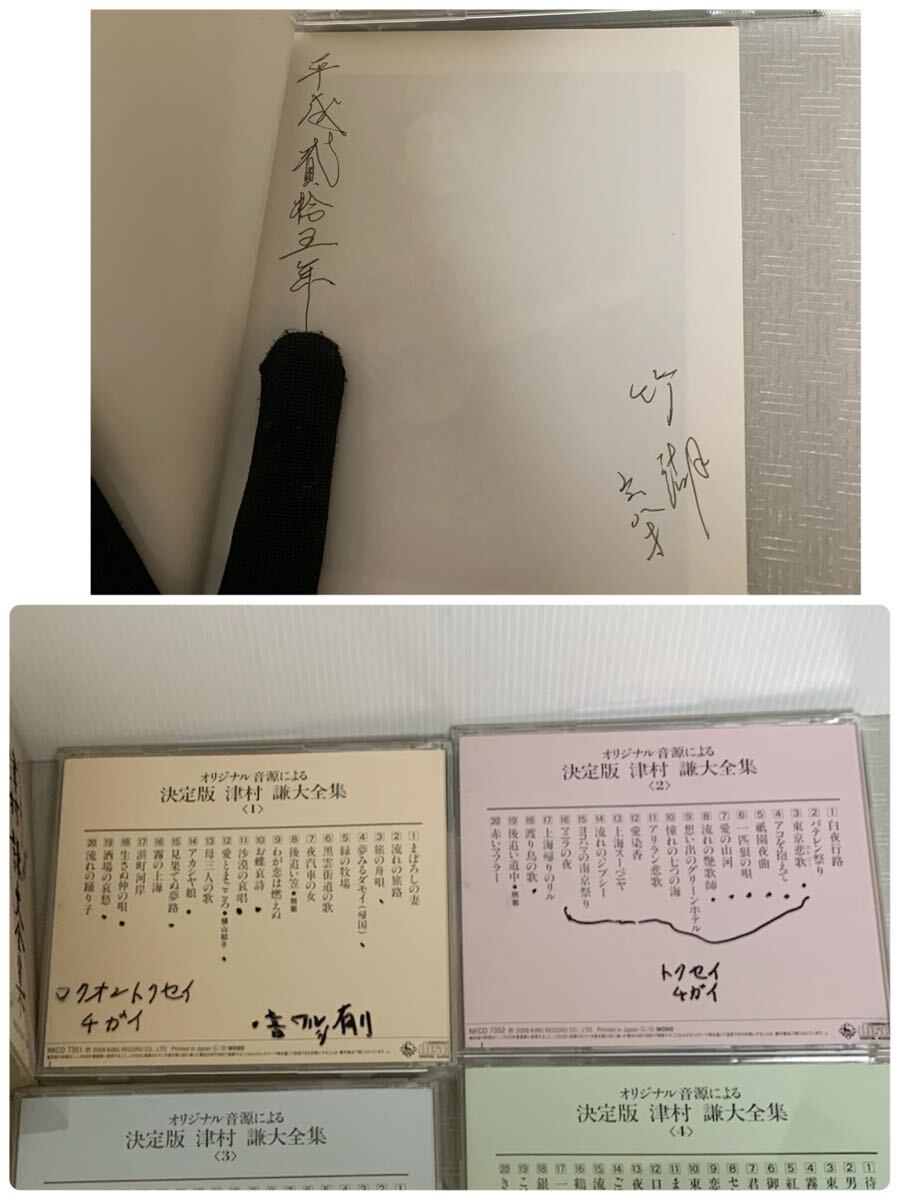 平成貳拾五年
竹
湖
オリジナル音源による
決定版 津村 謙大全集
〈1〉
1 まぼろしの妻
2 流れの旅路
3 旅の舟唄
4 夢みるダモイ(帰国)
5 緑の牧場
6 黒雲街道の歌
7 夜汽車の女
8 後追い笠
9 わが恋は燃えぬ
10 お蝶哀詩
11 沙漠の哀唱
12 愛とまごころ ●横山郁子
13 母三人の歌
14 アカシヤ娘
15 見果てぬ夢路
16 霧の上海
17 浜町河岸
18 生さぬ仲の唄
19 酒場の哀愁
20 流れの踊り子
ロクオントクセイ
チガイ
NKCD 7351 Ⓟ 2009 KING RECORD CO., LTD. Printed in Japan MONO
オリジナル音源による
決定版 津村 謙大全集
〈2〉
1 白夜行路
2 バテレン祭り
3 東京悲歌
4 アコを抱えて
5 祇園夜曲
6 一匹狼の唄
7 愛の山河
8 流れの艶歌師
9 想い出のグリーンホテル
10 憧れの七つの海
11 アリラン悲歌
12 愛染香
13 上海スーベニヤ
14 流れのジプシー
15 ヨコハマの南京祭り
16 マニラの夜
17 上海帰りのリル
18 渡り鳥の歌
19 後追い道中
20 赤いマフラー
トクセイ
チガイ
NKCD 7352 Ⓟ 2009 KING RECORD CO., LTD. Printed in Japan MONO
オリジナル音源による
決定版 津村 謙大全集
〈3〉
オリジナル音源による
決定版 津村 謙大全集
〈4〉